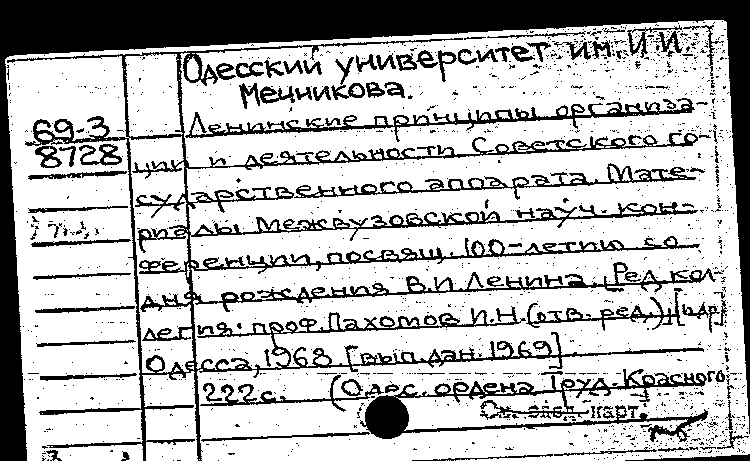 Одесский университет им. И.И.
Мечникова.
69-3
8728
Ленинские принципы организа-
ции и деятельности Советского го-
сударственного аппарата. Мате-
риалы Межвузовской науч. кон-
ференции, посвящ. 100-летию со
дня рождения В.И Ленина. [Ред. кол-
легия: проф. Пахомов И.Н. (отв. ред.), [и др.]
Одесса, 1968 [вып. дан. 1969].
222 с. (Одес. ордена Труд. Красного
См. след. карт.